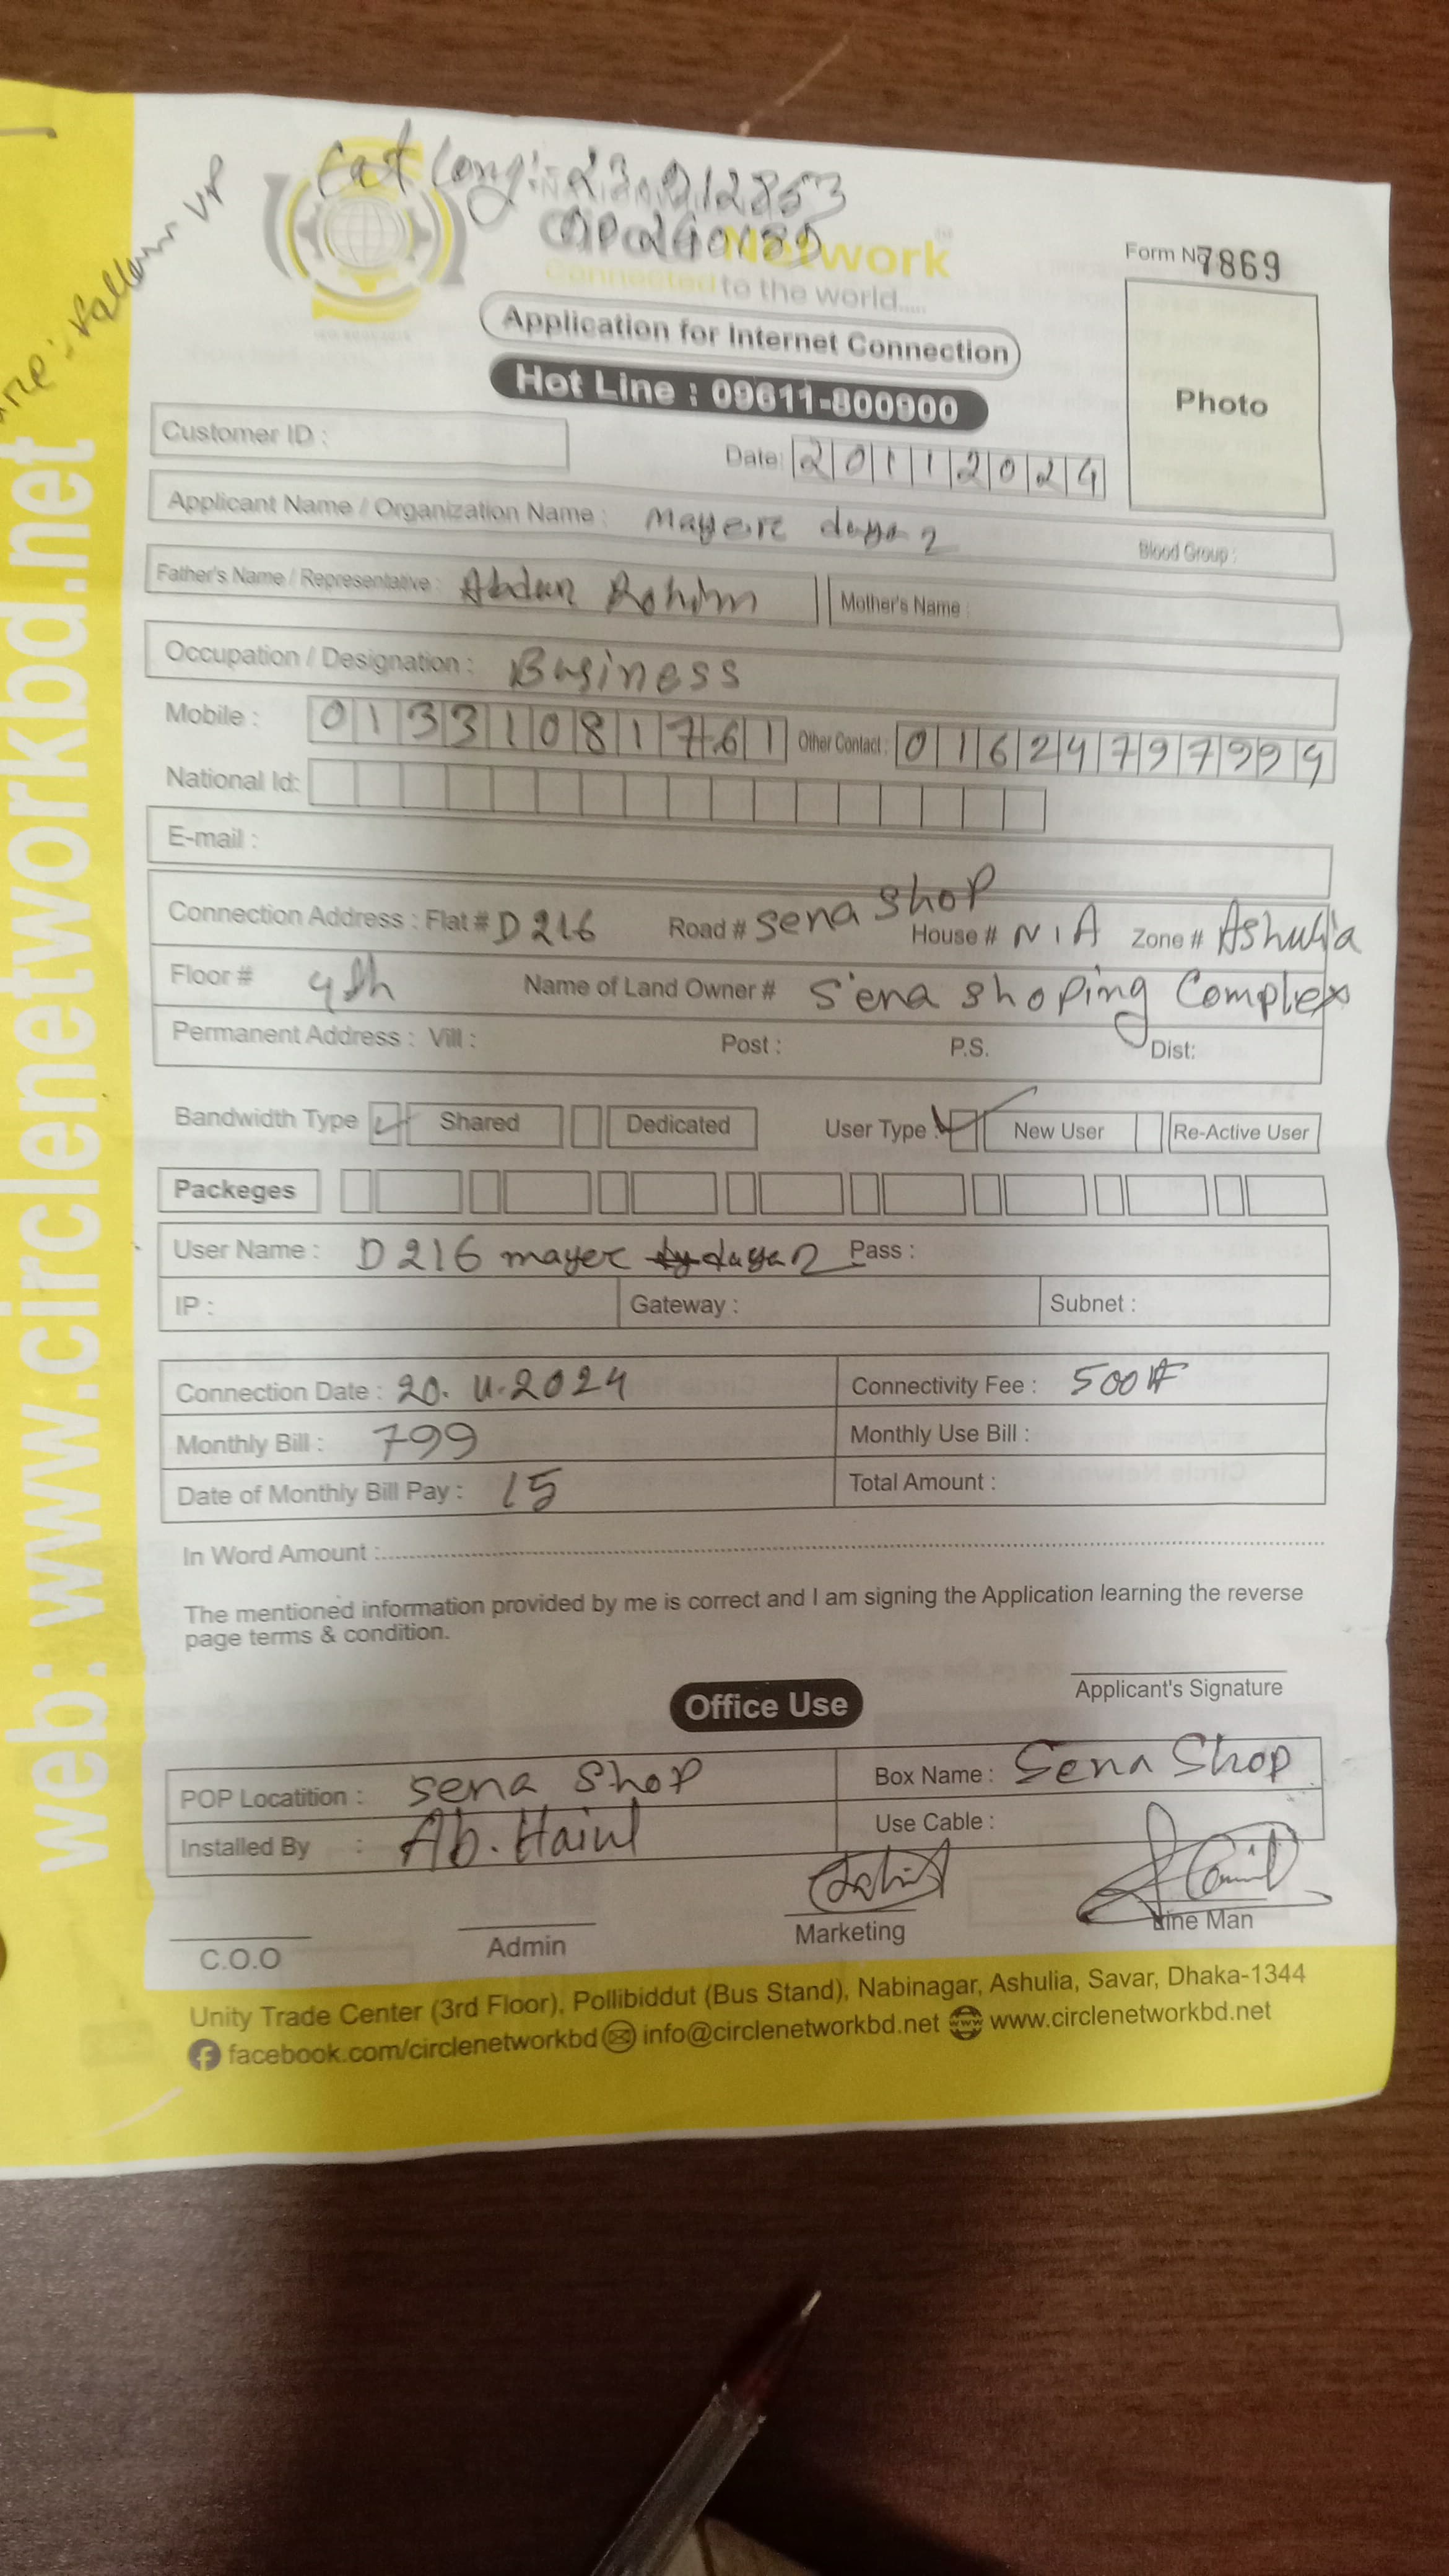 Lat Long: 23.912853
Network
Connected to the world.....
Form No 7869
Application for Internet Connection
Hot Line : 09611-800900
Photo
Customer ID :
Date: 20112024
Applicant Name / Organization Name : Mayere doya 2
Blood Group :
Father's Name / Representative : Abdur Rohim
Mother's Name :
Occupation / Designation : Business
Mobile : 01331081761 Other Contact : 01624797994
National Id:
E-mail :
Connection Address : Flat # D 216 Road # Sena Shop House # N/A Zone # Ashulia
Floor # 4th Name of Land Owner # Sena shoping Complex
Permanent Address : Vill : Post : P.S. Dist:
Bandwidth Type Shared Dedicated User Type : New User Re-Active User
Packeges
User Name : D 216 mayer doya 2 Pass :
IP : Gateway : Subnet :
Connection Date : 20.11.2024 Connectivity Fee : 500
Monthly Bill : 799 Monthly Use Bill :
Date of Monthly Bill Pay : 15 Total Amount :
In Word Amount :
The mentioned information provided by me is correct and I am signing the Application learning the reverse
page terms & condition.
Applicant's Signature
Office Use
POP Locatition : Sena Shop Box Name : Sena Shop
Installed By : Use Cable :
C.O.O Admin Marketing Line Man
Unity Trade Center (3rd Floor), Pollibiddut (Bus Stand), Nabinagar, Ashulia, Savar, Dhaka-1344
facebook.com/circlenetworkbd info@circlenetworkbd.net www.circlenetworkbd.net
web: www.circlenetworkbd.net